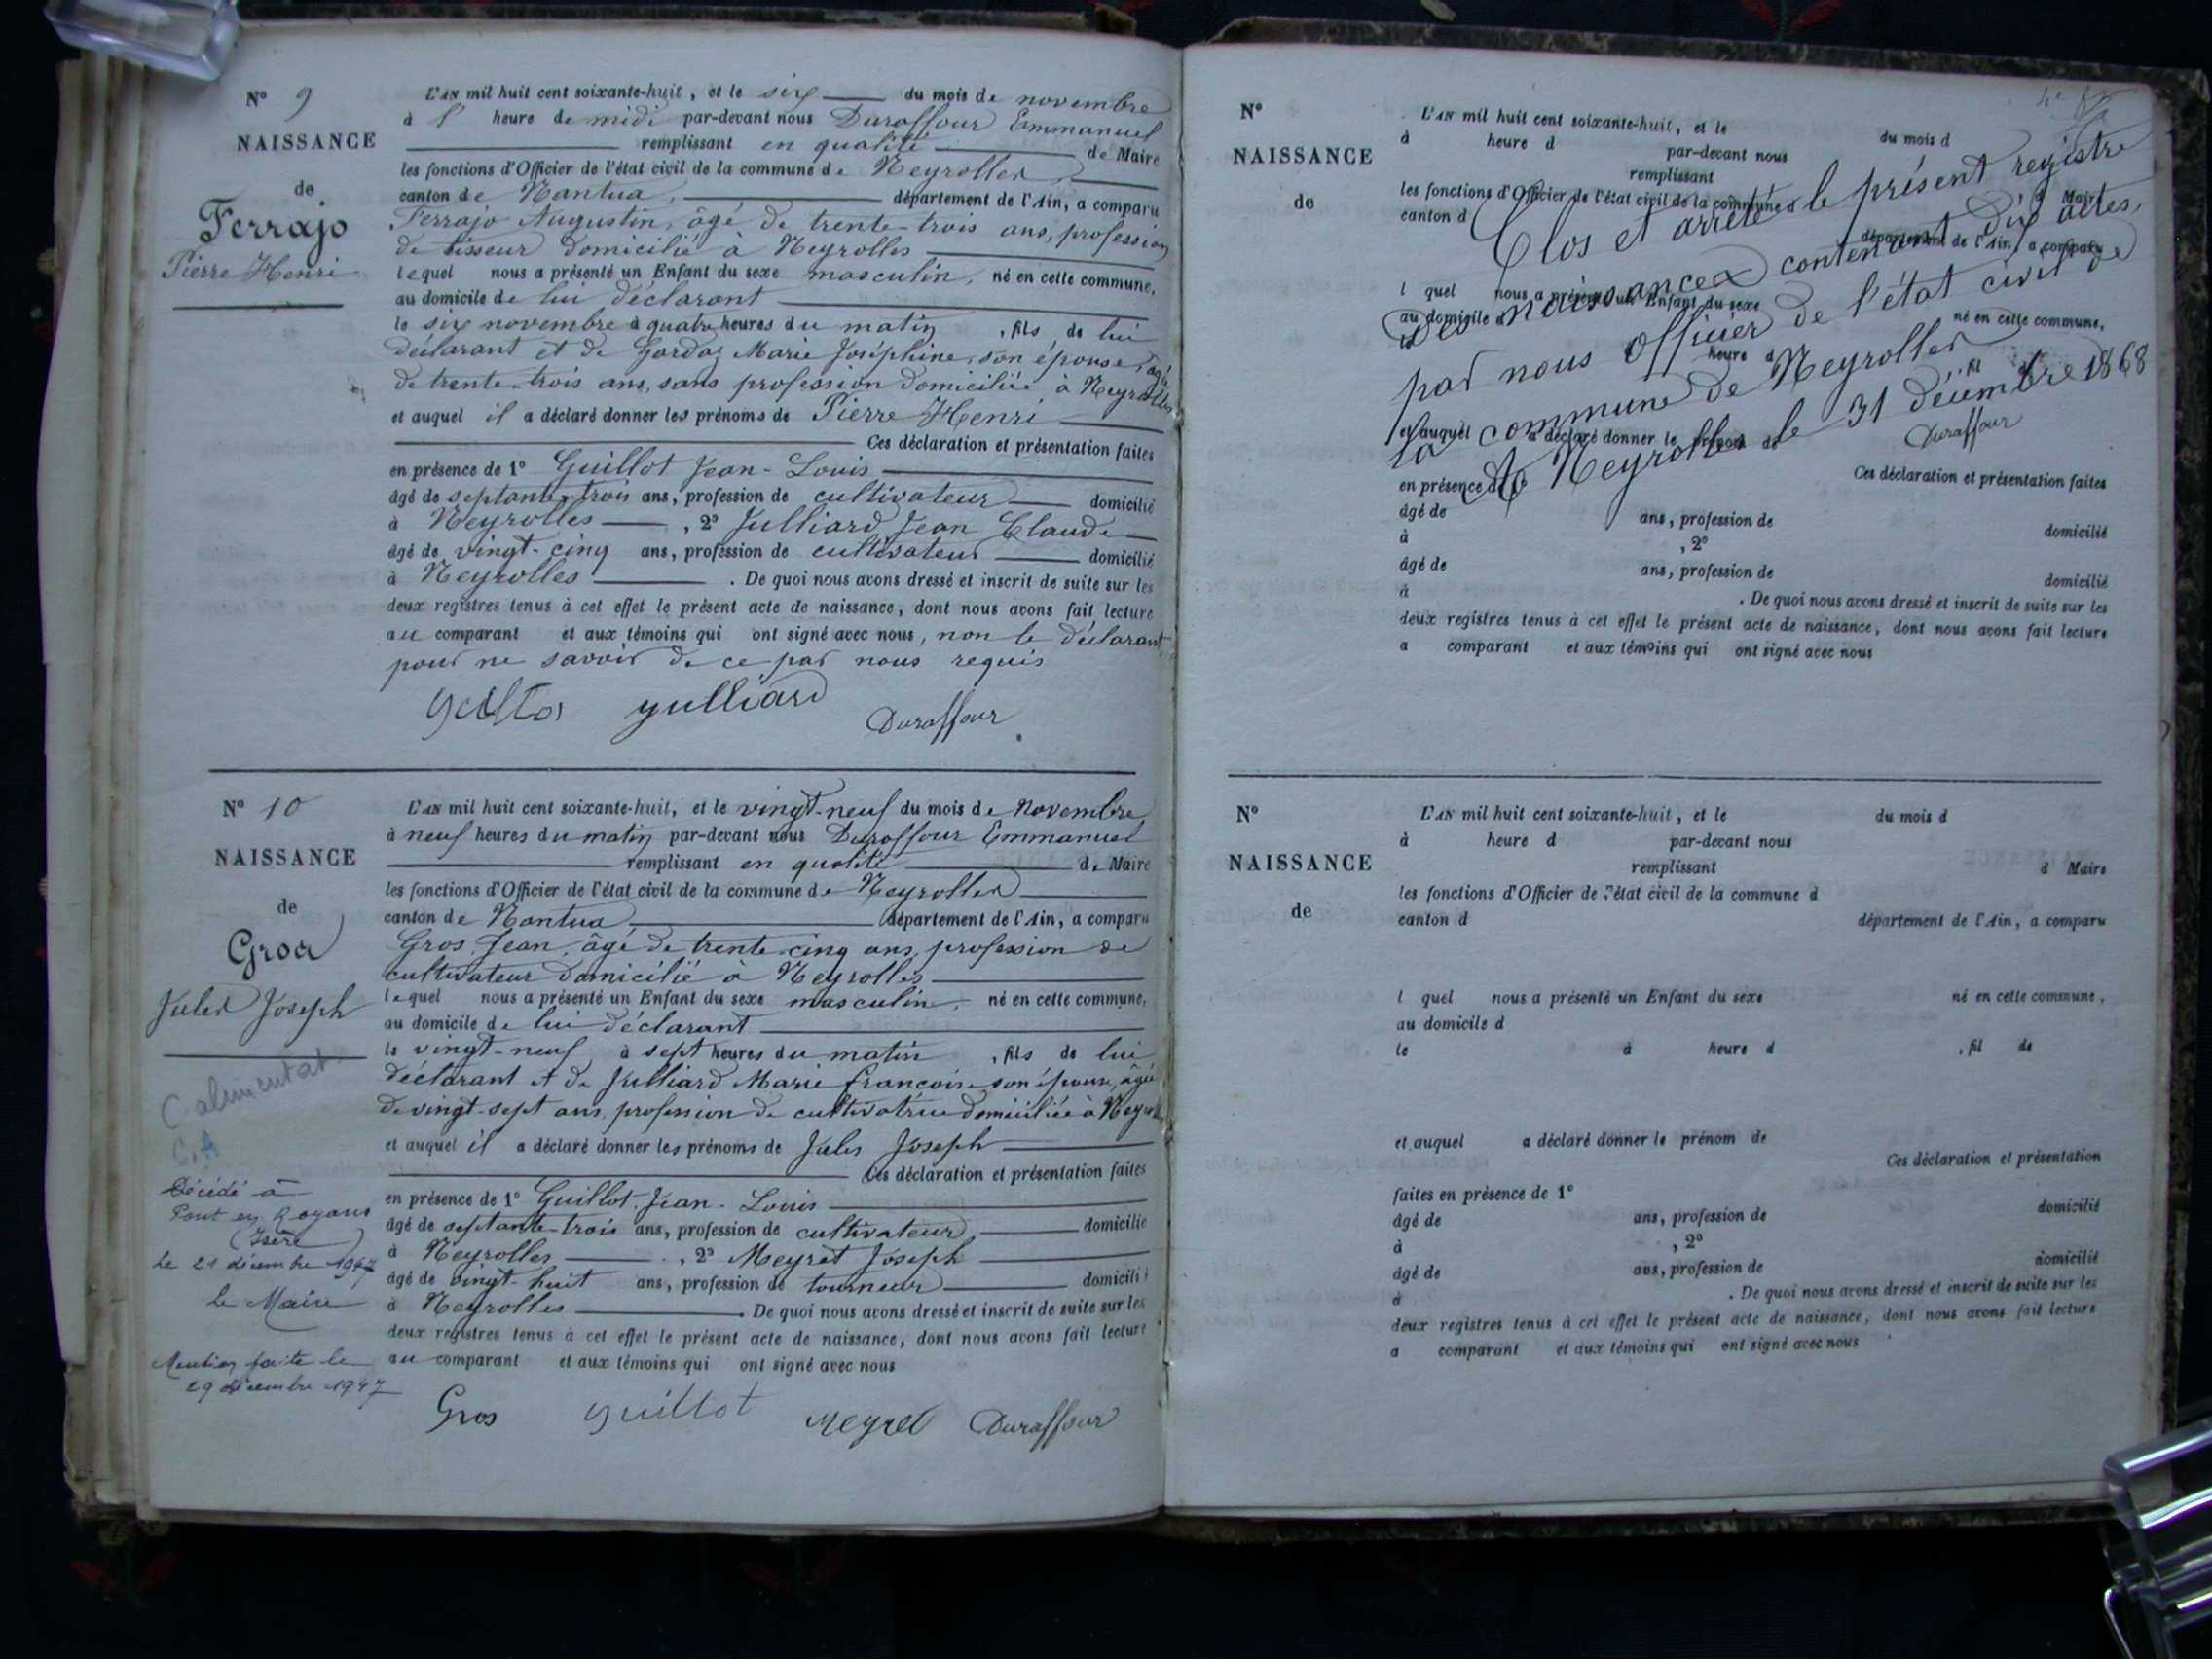 N° 9
NAISSANCE
de
Ferrajo
Pierre Henri
L'AN mil huit cent soixante-huit, et le six du mois de novembre
à 1 heure de midi par-devant nous Duraffour Emmanuel
remplissant en qualité de Maire
les fonctions d'Officier de l'état civil de la commune de Neyrolles
canton de Nantua, département de l'Ain, a comparu
Ferrajo Augustin, âgé de trente-trois ans, profession
de tisseur domicilié à Neyrolles
lequel nous a présenté un Enfant du sexe masculin, né en cette commune,
au domicile de lui déclarant
le six novembre à quatre heures du matin, fils de lui
déclarant et de Gordaz Marie Joséphine, son épouse, âgée
de trente-trois ans, sans profession domiciliée à Neyrolles
et auquel il a déclaré donner les prénoms de Pierre Henri
Ces déclaration et présentation faites
en présence de 1° Guillot Jean-Louis
âgé de septante-trois ans, profession de cultivateur domicilié
à Neyrolles, 2° Julliard Jean Claude
âgé de vingt-cinq ans, profession de cultivateur domicilié
à Neyrolles. De quoi nous avons dressé et inscrit de suite sur les
deux registres tenus à cet effet le présent acte de naissance, dont nous avons fait lecture
au comparant et aux témoins qui ont signé avec nous, non le déclarant,
pour ne savoir de ce par nous requis
Julliard Duraffour
N° 10
NAISSANCE
de
Gros
Jules Joseph
L'AN mil huit cent soixante-huit, et le vingt-neuf du mois de Novembre
à neuf heures du matin par-devant nous Duraffour Emmanuel
remplissant en qualité de Maire
les fonctions d'Officier de l'état civil de la commune de Neyrolles
canton de Nantua, département de l'Ain, a comparu
Gros Jean, âgé de trente-cinq ans, profession de
cultivateur domicilié à Neyrolles
lequel nous a présenté un Enfant du sexe masculin, né en cette commune,
au domicile de lui déclarant
le vingt-neuf à sept heures du matin, fils de lui
déclarant et de Julliard Marie françoise son épouse, âgée
de vingt-sept ans, profession de cultivatrice domiciliée à Neyrolles
et auquel il a déclaré donner les prénoms de Jules Joseph
Ces déclaration et présentation faites
en présence de 1° Guillot Jean-Louis
âgé de septante-trois ans, profession de cultivateur domicilié
à Neyrolles, 2° Meyret Joseph
âgé de vingt huit ans, profession de tourneur domicilié
à Neyrolles. De quoi nous avons dressé et inscrit de suite sur les
deux registres tenus à cet effet le présent acte de naissance, dont nous avons fait lecture
au comparant et aux témoins qui ont signé avec nous
Gros Guillot Meyret Duraffour
C.A
Décédé à
Pont en Royans
(Isère)
le 21 décembre 1947
le Maire
Mention faite le
29 décembre 1947
N°
NAISSANCE
de
L'AN mil huit cent soixante-huit, et le du mois d
à heure d par-devant nous
remplissant d Maire
les fonctions d'Officier de l'état civil de la commune d
canton d département de l'Ain, a comparu
l quel nous a présenté un Enfant du sexe né en cette commune,
au domicile d
heure d , fil
et auquel a déclaré donner le prénom de
Ces déclaration et présentation faites
en présence de 1°
âgé de ans, profession de domicilié
à , 2°
âgé de ans, profession de domicilié
à . De quoi nous avons dressé et inscrit de suite sur les
deux registres tenus à cet effet le présent acte de naissance, dont nous avons fait lecture
a comparant et aux témoins qui ont signé avec nous
Clos et arrêté le présent registre
des naissances contenant dix actes,
par nous Officier de l'état civil de
la commune de Neyrolles
A Neyrolles le 31 décembre 1868
Duraffour
N°
NAISSANCE
de
L'AN mil huit cent soixante-huit, et le du mois d
à heure d par-devant nous
remplissant d Maire
les fonctions d'Officier de l'état civil de la commune d
canton d département de l'Ain, a comparu
l quel nous a présenté un Enfant du sexe né en cette commune,
au domicile d
le à heure d , fil de
et auquel a déclaré donner le prénom de
Ces déclaration et présentation
faites en présence de 1°
âgé de ans, profession de domicilié
à , 2°
âgé de ans, profession de domicilié
à . De quoi nous avons dressé et inscrit de suite sur les
deux registres tenus à cet effet le présent acte de naissance, dont nous avons fait lecture
a comparant et aux témoins qui ont signé avec nous